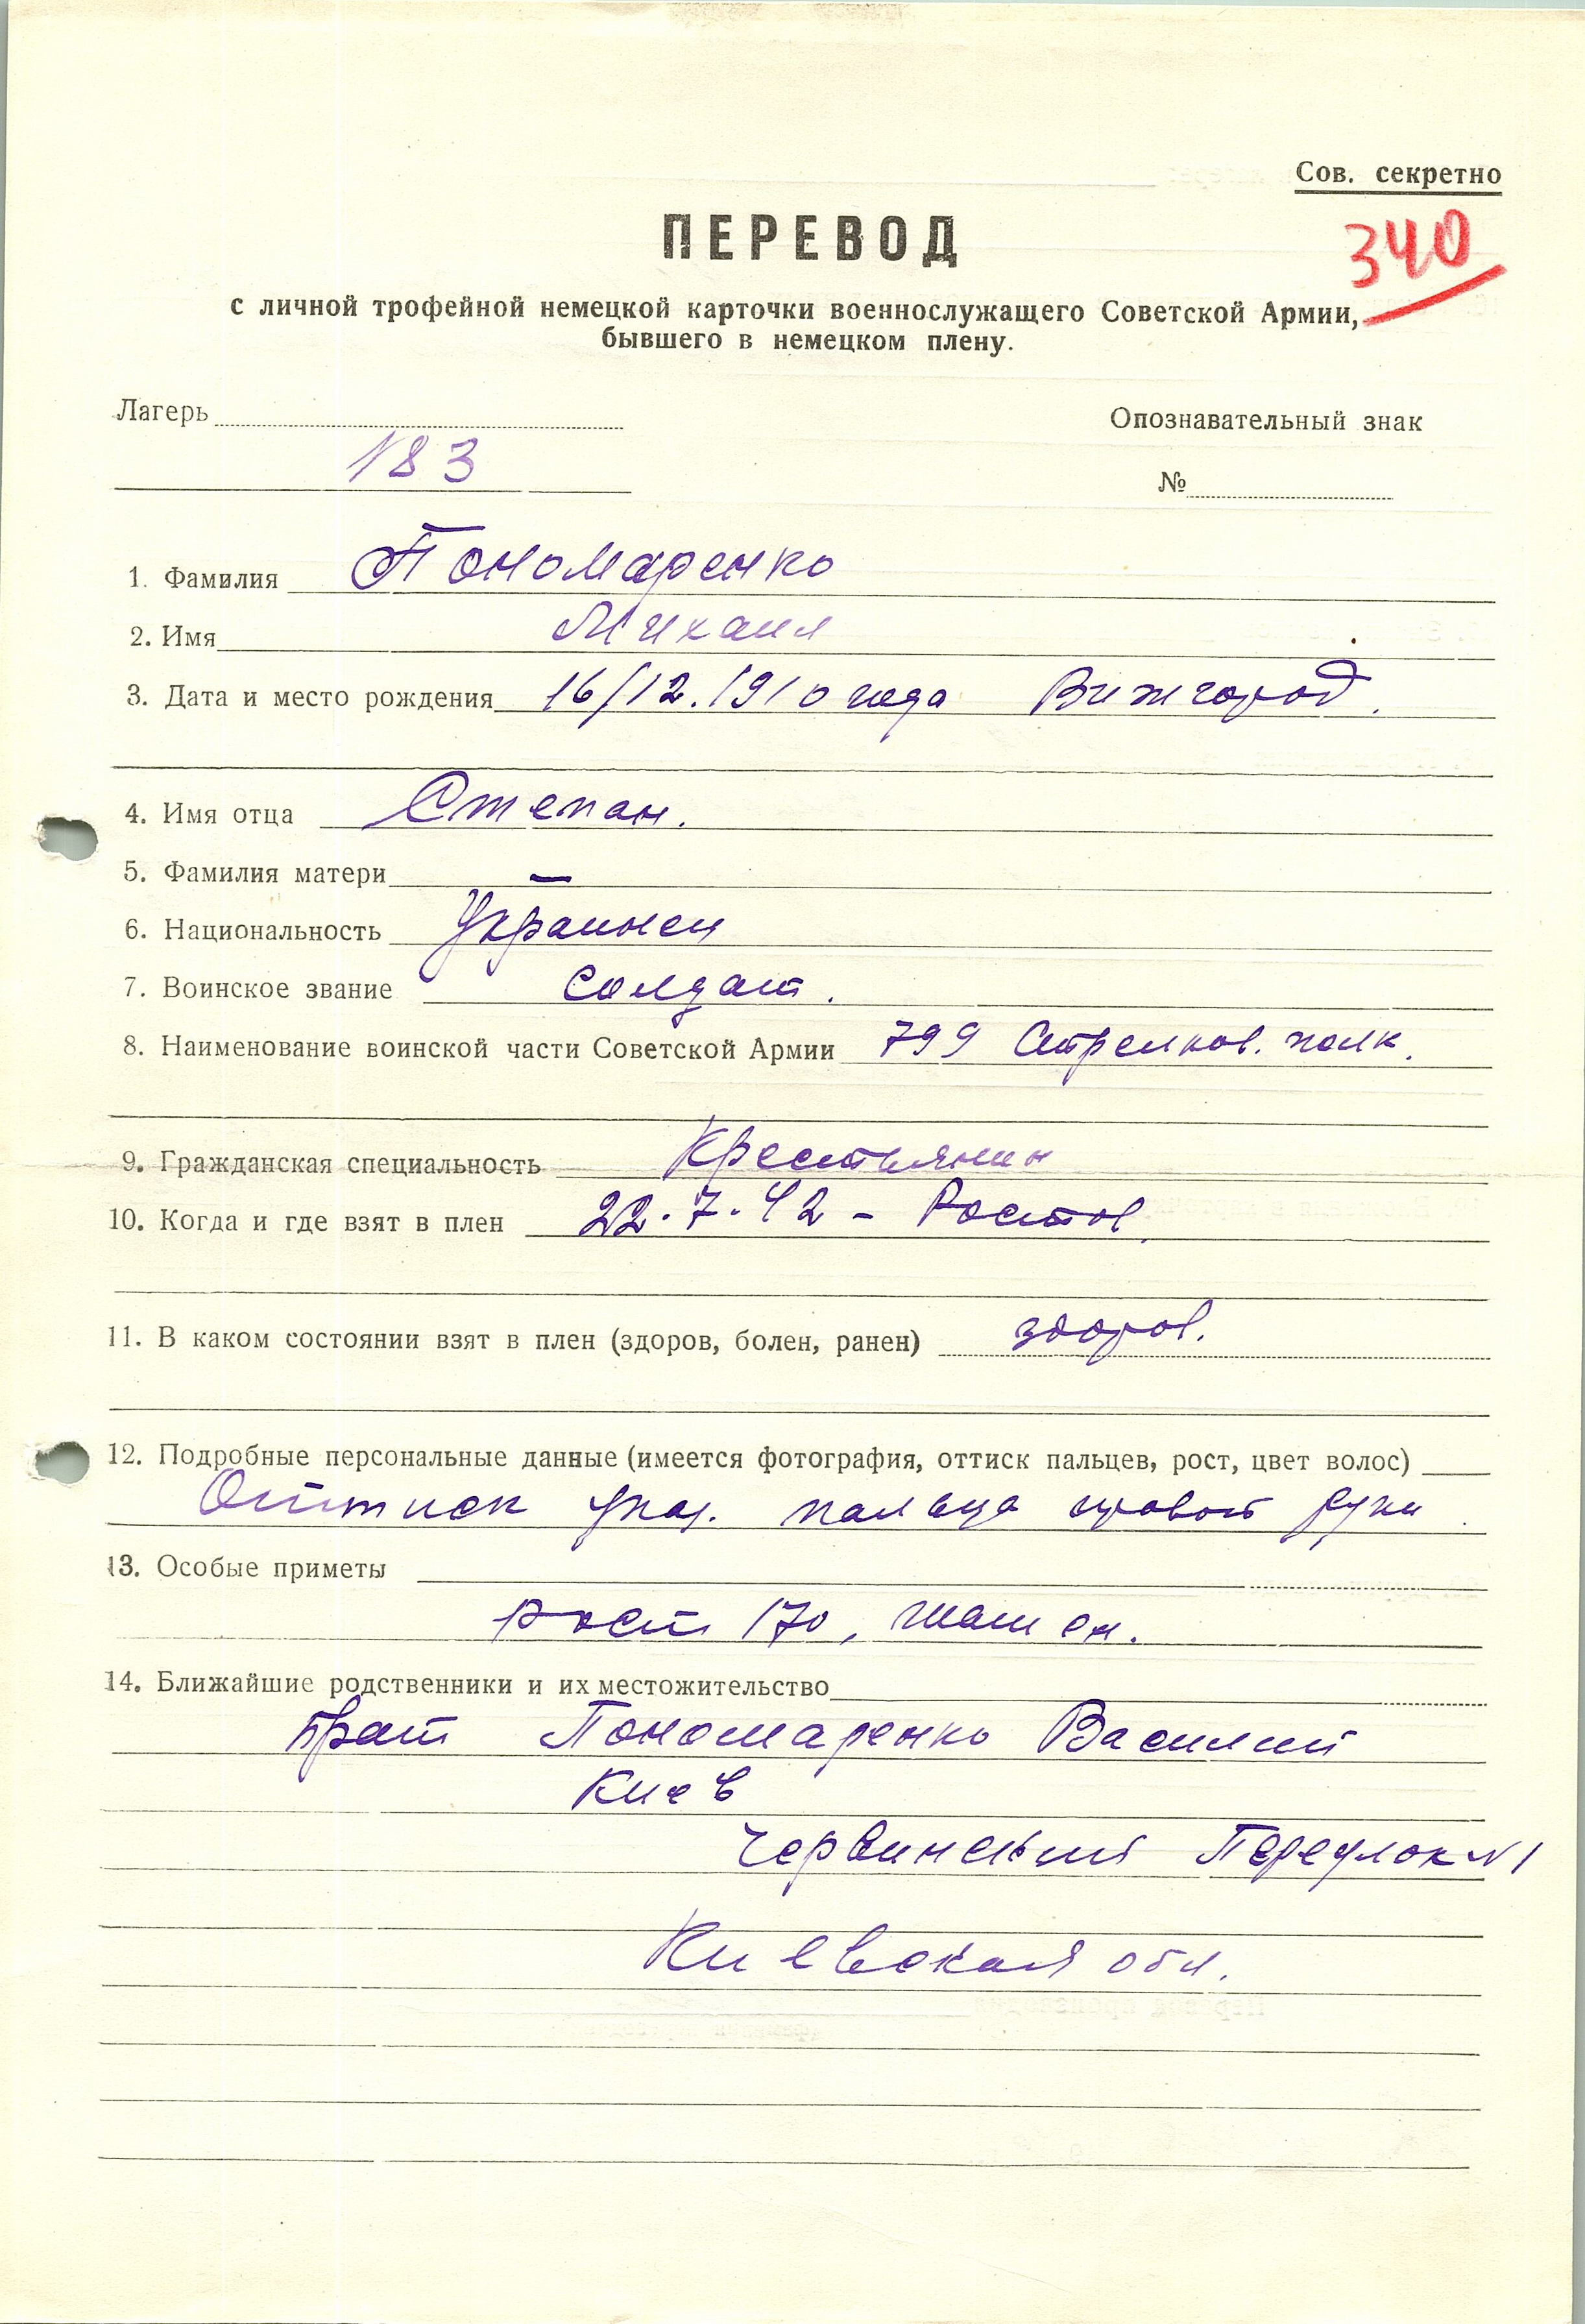 Сов. секретно
340
ПЕРЕВОД
с личной трофейной немецкой карточки военнослужащего Советской Армии,
бывшего в немецком плену.
Лагерь
Опознавательный знак
183
№
1. Фамилия Пономаренко
2. Имя Михаил
3. Дата и место рождения 16/12.1910 года Вижгород.
4. Имя отца Степан.
5. Фамилия матери —
6. Национальность Украинец
7. Воинское звание солдат.
8. Наименование воинской части Советской Армии 799 Стрелков. полк.
9. Гражданская специальность Крестьянин
10. Когда и где взят в плен 22.7.42 - Ростов.
11. В каком состоянии взят в плен (здоров, болен, ранен) здоров.
12. Подробные персональные данные (имеется фотография, оттиск пальцев, рост, цвет волос)
Оттиск указ. пальца правой руки.
13. Особые приметы
рост 170, шатен.
14. Ближайшие родственники и их местожительство
брат Пономаренко Василий
Киев
Переулок N 1
Киевская обл.